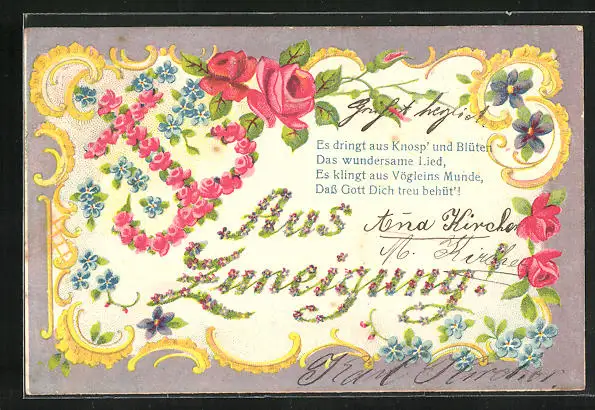 Grüßt herzlich.
Es dringt aus Knosp' und Blüten
Das wundersame Lied,
Es klingt aus Vögleins Munde,
Daß Gott Dich treu behüt'!
Aus
Zuneigung!
Aña Kircher
M. Kircher
Karl Kircher.